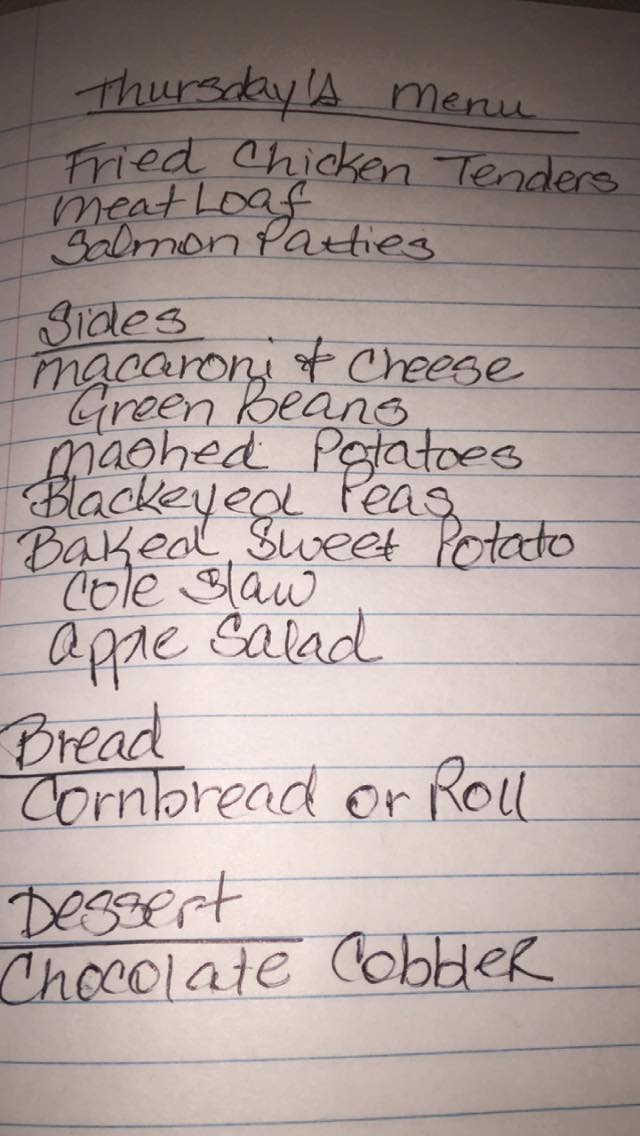 Thursday's Menu
Fried Chicken Tenders
Meat Loaf
Salmon Patties
Sides
Macaroni & Cheese
Green Beans
Mashed Potatoes
Blackeyed Peas
Baked Sweet Potato
Cole Slaw
Apple Salad
Bread
Cornbread or Roll
Dessert
Chocolate Cobbler